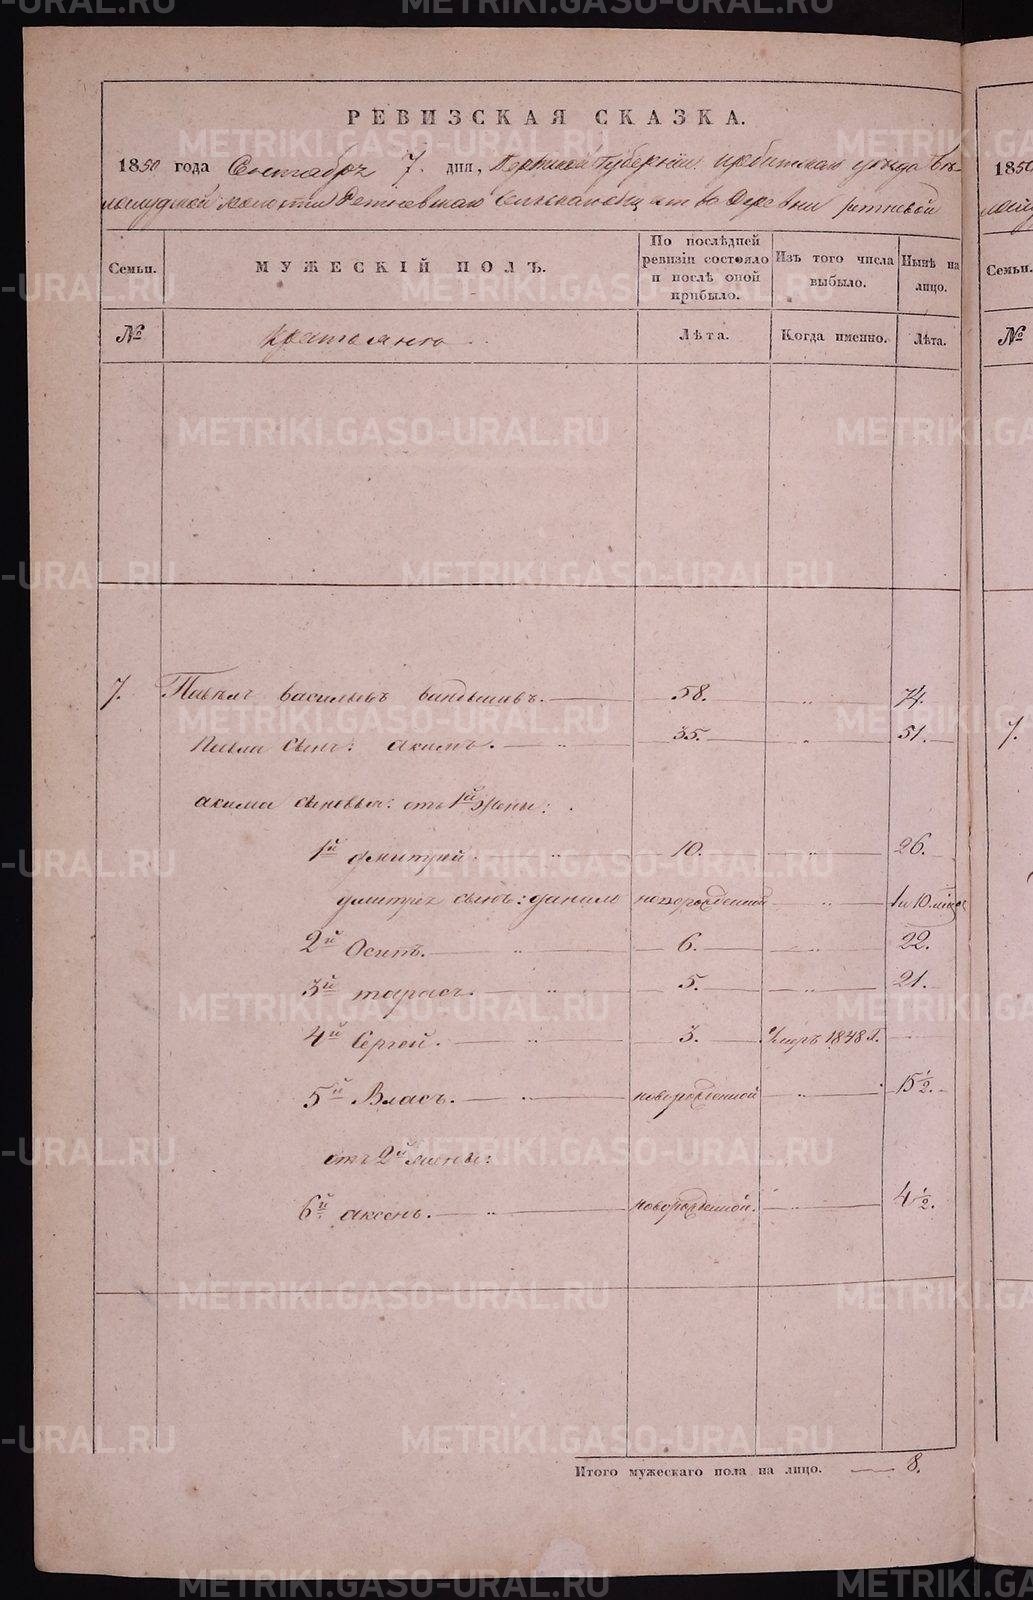 РЕВИЗСКАЯ СКАЗКА.
1850 года Сентября 7. дня, Пермской Губернии Ирбитскаго уезда Бе-
лослудской волости Ретневскаго Сельскаго Деревни ретневой
Семьи.
МУЖЕСКІЙ ПОЛЪ.
По послѣдней ревизіи состояло и послѣ оной прибыло.
Изъ того числа выбыло.
Нынѣ на лицо.
№
Лѣта.
Когда именно.
Лѣта.
7. Павелъ васильевъ вандышевъ. 58. 74.
Павла Сынъ: акимъ. 35. 51.
акима сыновья: отъ 1й жены:
1й дмитрей 10. 26.
дмитрея сынъ: данило новорожденной 1 и 10. мѣсяц
2й Осипъ. 6. 22.
3й тарасъ. 5. 21.
4й Сергей. 3. Умеръ 1848 г.
5й Власъ. новорожденной 15½.
отъ 2й жены:
6й аксенъ. новорожденной. 4½.
Итого мужескаго пола на лицо. 8.
1850
Семьи.
№
7.
METRIKI.GASO-URAL.RU